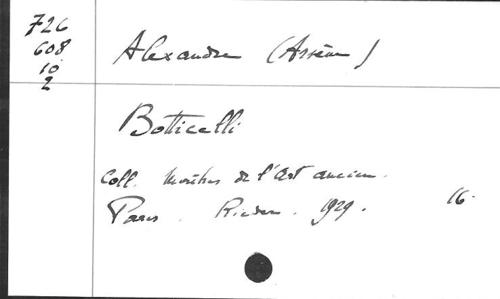 726
608
10
2
Alexandre (Arsène)
Botticelli
Coll. Maîtres de l'Art ancien.
Paris. Rieder. 1929. 16.